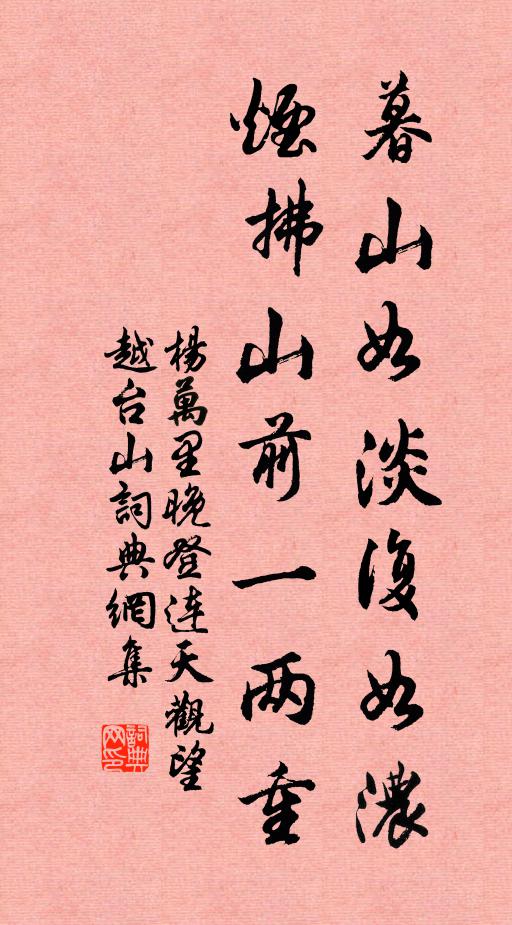 暮山如淡復如濃
煙拂山前一两重
楊萬里晚登連天觀望
越台山詞典網集
詞典
网印